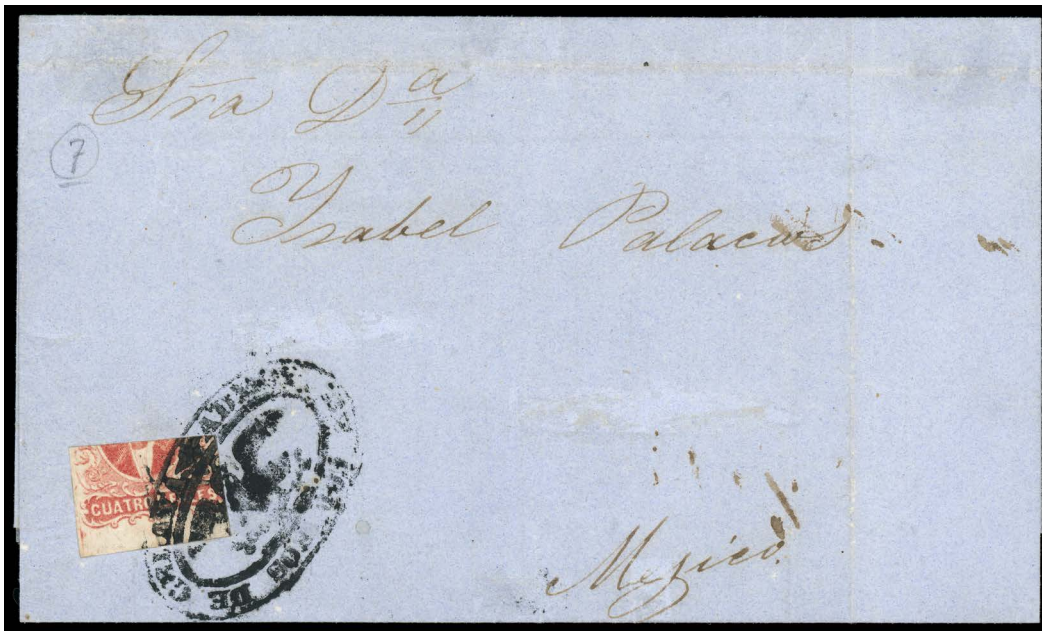 Sra Dª
7
Ysabel Palacios.
CUATRO REALES
DE
Mexico.